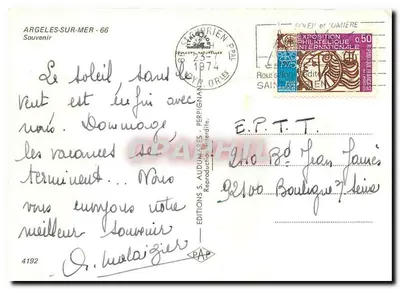 ARGELES-SUR-MER - 66
Souvenir
Le soleil sans le
vent est enfin avec
nous. Dommage,
les vacances se
terminent... Nous
vous envoyons notre
meilleur souvenir
4192
EDITIONS S. AUDUMARES - PERPIGNAN
Reproduction interdite
PAP
1974
SOLEIL et LUMIERE
EXPOSITION
PHILATELIQUE
INTERNATIONALE
0,50
E.P.T.T.
210 Bd Jean Jaurès
92100 Boulogne s/ Seine